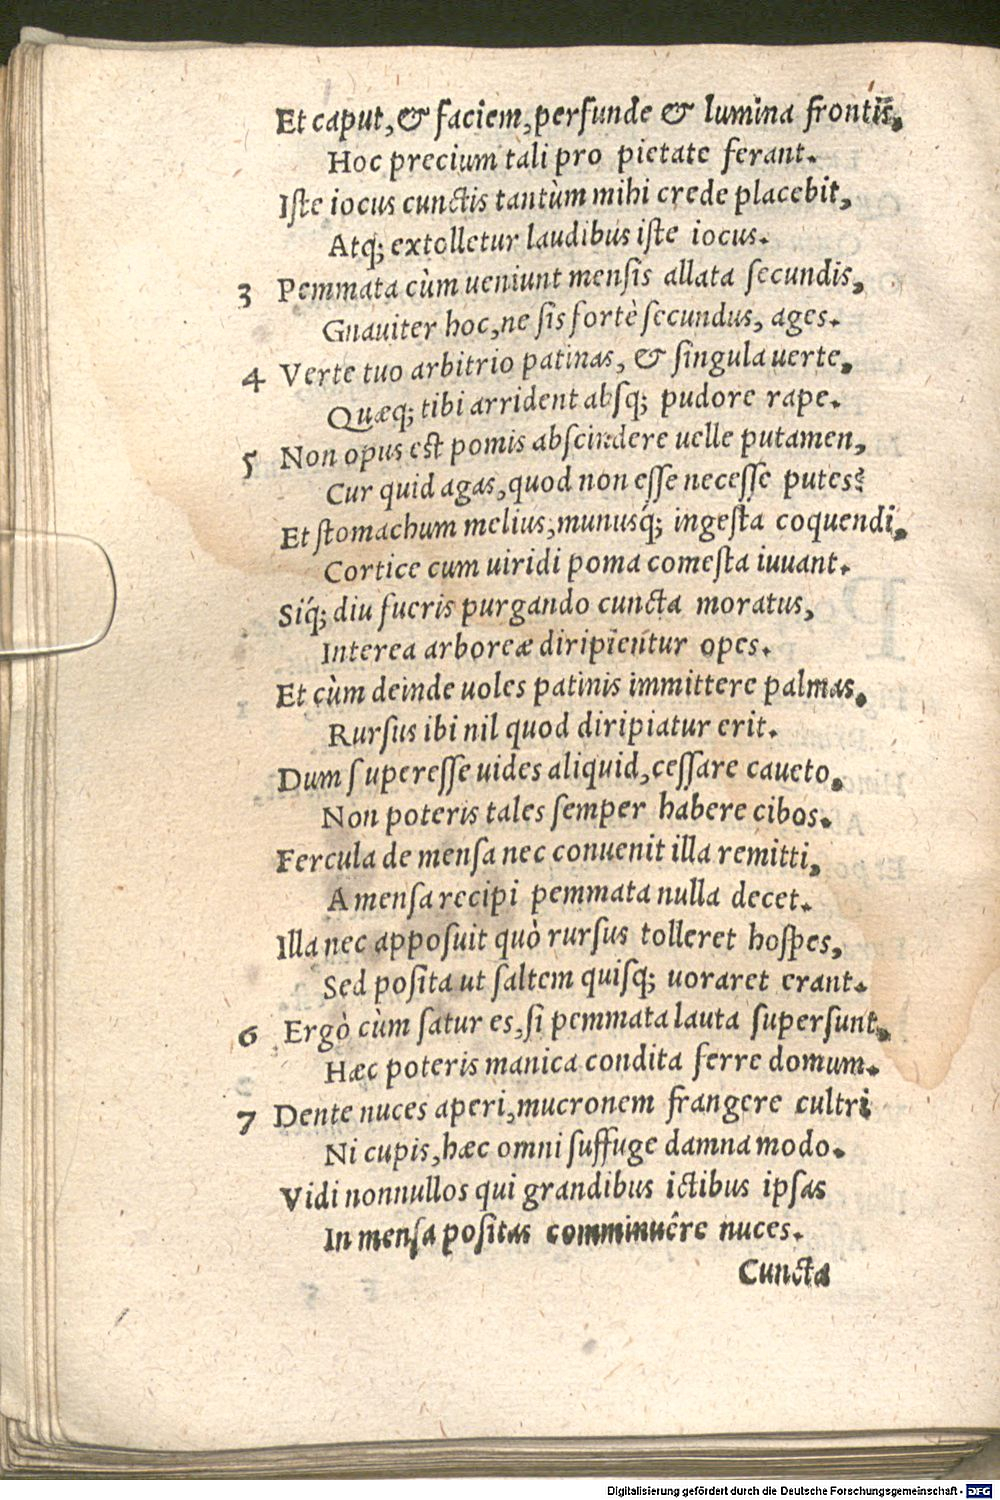 Et caput, & faciem, perfunde & lumina frontis,
Hoc precium tali pro pietate ferant.
Iſte iocus cunctis tantùm mihi crede placebit,
Atq; extolletur laudibus iſte iocus.
3 Pemmata cùm ueniunt menſis allata ſecundis,
Gnauiter hoc, ne ſis fortè ſecundus, ages.
4 Verte tuo arbitrio patinas, & ſingula uerte,
Quæq; tibi arrident abſq; pudore rape.
5 Non opus eſt pomis abſcindere uelle putamen,
Cur quid agas, quod non eſſe neceſſe putes?
Et ſtomachum melius, munusq́; ingeſta coquendi,
Cortice cum uiridi poma comeſta iuuant.
Siq́; diu fueris purgando cuncta moratus,
Interea arboreæ diripientur opes.
Et cùm deinde uoles patinis immittere palmas,
Rurſus ibi nil quod diripiatur erit.
Dum ſupereſſe uides aliquid, ceſſare caueto,
Non poteris tales ſemper habere cibos.
Fercula de menſa nec conuenit illa remitti,
A menſa recipi pemmata nulla decet.
Illa nec appoſuit quò rurſus tolleret hoſpes,
Sed poſita ut ſaltem quiſq; uoraret erant.
6 Ergò cùm ſatur es, ſi pemmata lauta ſuperſunt,
Hæc poteris manica condita ferre domum.
7 Dente nuces aperi, mucronem frangere cultri
Ni cupis, hæc omni ſuffuge damna modo.
Vidi nonnullos qui grandibus ictibus ipſas
In menſa poſitas comminuêre nuces.
Cuncta
Digitalisierung gefördert durch die Deutsche Forschungsgemeinschaft - DFG